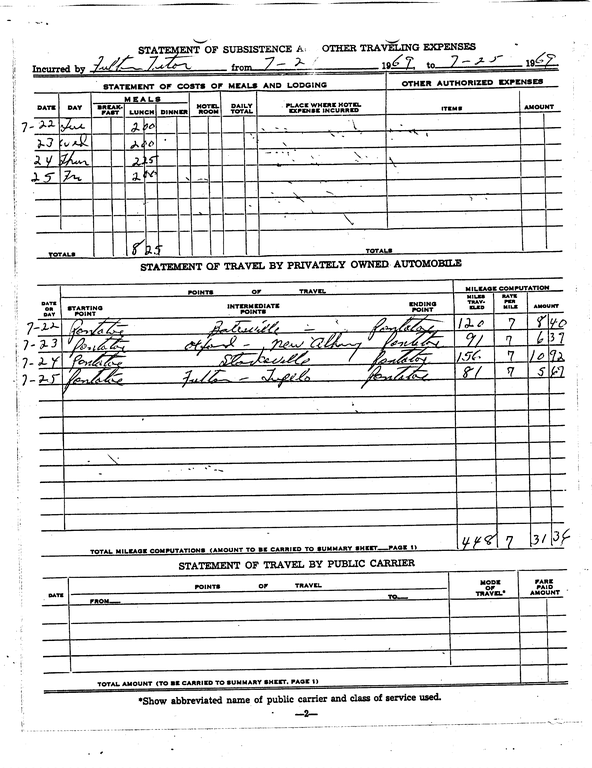 STATEMENT OF SUBSISTENCE A OTHER TRAVELING EXPENSES
Incurred by Fulton Tutor from 7-2 1969 to 7-25 1969
STATEMENT OF COSTS OF MEALS AND LODGING OTHER AUTHORIZED EXPENSES
DATE DAY MEALS BREAK-FAST LUNCH DINNER HOTEL ROOM DAILY TOTAL PLACE WHERE HOTEL EXPENSE INCURRED ITEMS AMOUNT
7-22 Tue 2 00
23 Wed 2 00
24 Thur 2 25
25 Fri 2 00
TOTALS 8 25 TOTALS
STATEMENT OF TRAVEL BY PRIVATELY OWNED AUTOMOBILE
POINTS OF TRAVEL MILEAGE COMPUTATION
DATE OR DAY STARTING POINT INTERMEDIATE POINTS ENDING POINT MILES TRAV-ELED RATE PER MILE AMOUNT
7-22 Pontotoc Batesville - Pontotoc 120 7 8 40
7-23 Pontotoc Oxford - New Albany Pontotoc 91 7 6 37
7-24 Pontotoc Starkville Pontotoc 156 7 10 92
7-25 Pontotoc Fulton - Tupelo Pontotoc 81 7 5 67
TOTAL MILEAGE COMPUTATIONS (AMOUNT TO BE CARRIED TO SUMMARY SHEET PAGE 1) 448 7 31 36
STATEMENT OF TRAVEL BY PUBLIC CARRIER
DATE POINTS OF TRAVEL MODE OF TRAVEL* FARE PAID AMOUNT
FROM TO
TOTAL AMOUNT (TO BE CARRIED TO SUMMARY SHEET, PAGE 1)
*Show abbreviated name of public carrier and class of service used.
—2—